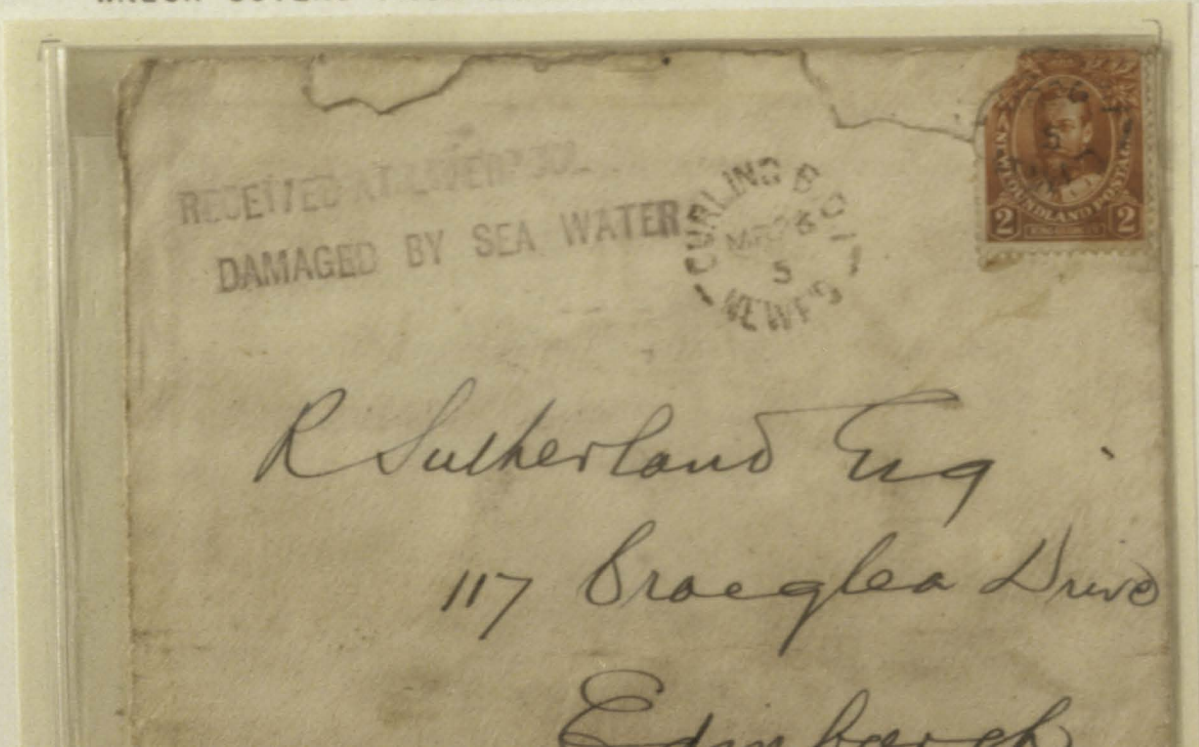 RECEIVED AT LIVERPOOL
DAMAGED BY SEA WATER
CURLING B.O.I
MR 26
5
NEWF'D
NEWFOUNDLAND POSTAGE
2 2
R Sutherland Esq
117 Braeglea Drive
Edinburgh